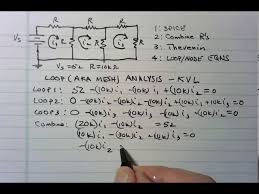 R R R
1: SPICE
Vs i₁ R i₂ R i₃ R
2: Combine R's
3: Thevenin
Vs=52 R=10KΩ
4: LOOP/NODE EQNS
LOOP (AKA MESH) ANALYSIS - KVL
LOOP 1: 52 -(10K)i₁ -(10K)i₁ +(10K)i₂ = 0
LOOP 2: 0 -(10K)i₂ -(10K)i₂ +(10K)i₁ +(10K)i₃ = 0
LOOP 3: 0 -(10K)i₃ -(10K)i₃ +(10K)i₂ = 0
Combine: (20K)i₁ -(10K)i₂ = 52
(10K)i₁ -(30K)i₂ +(10K)i₃ = 0
-(10K)i₂